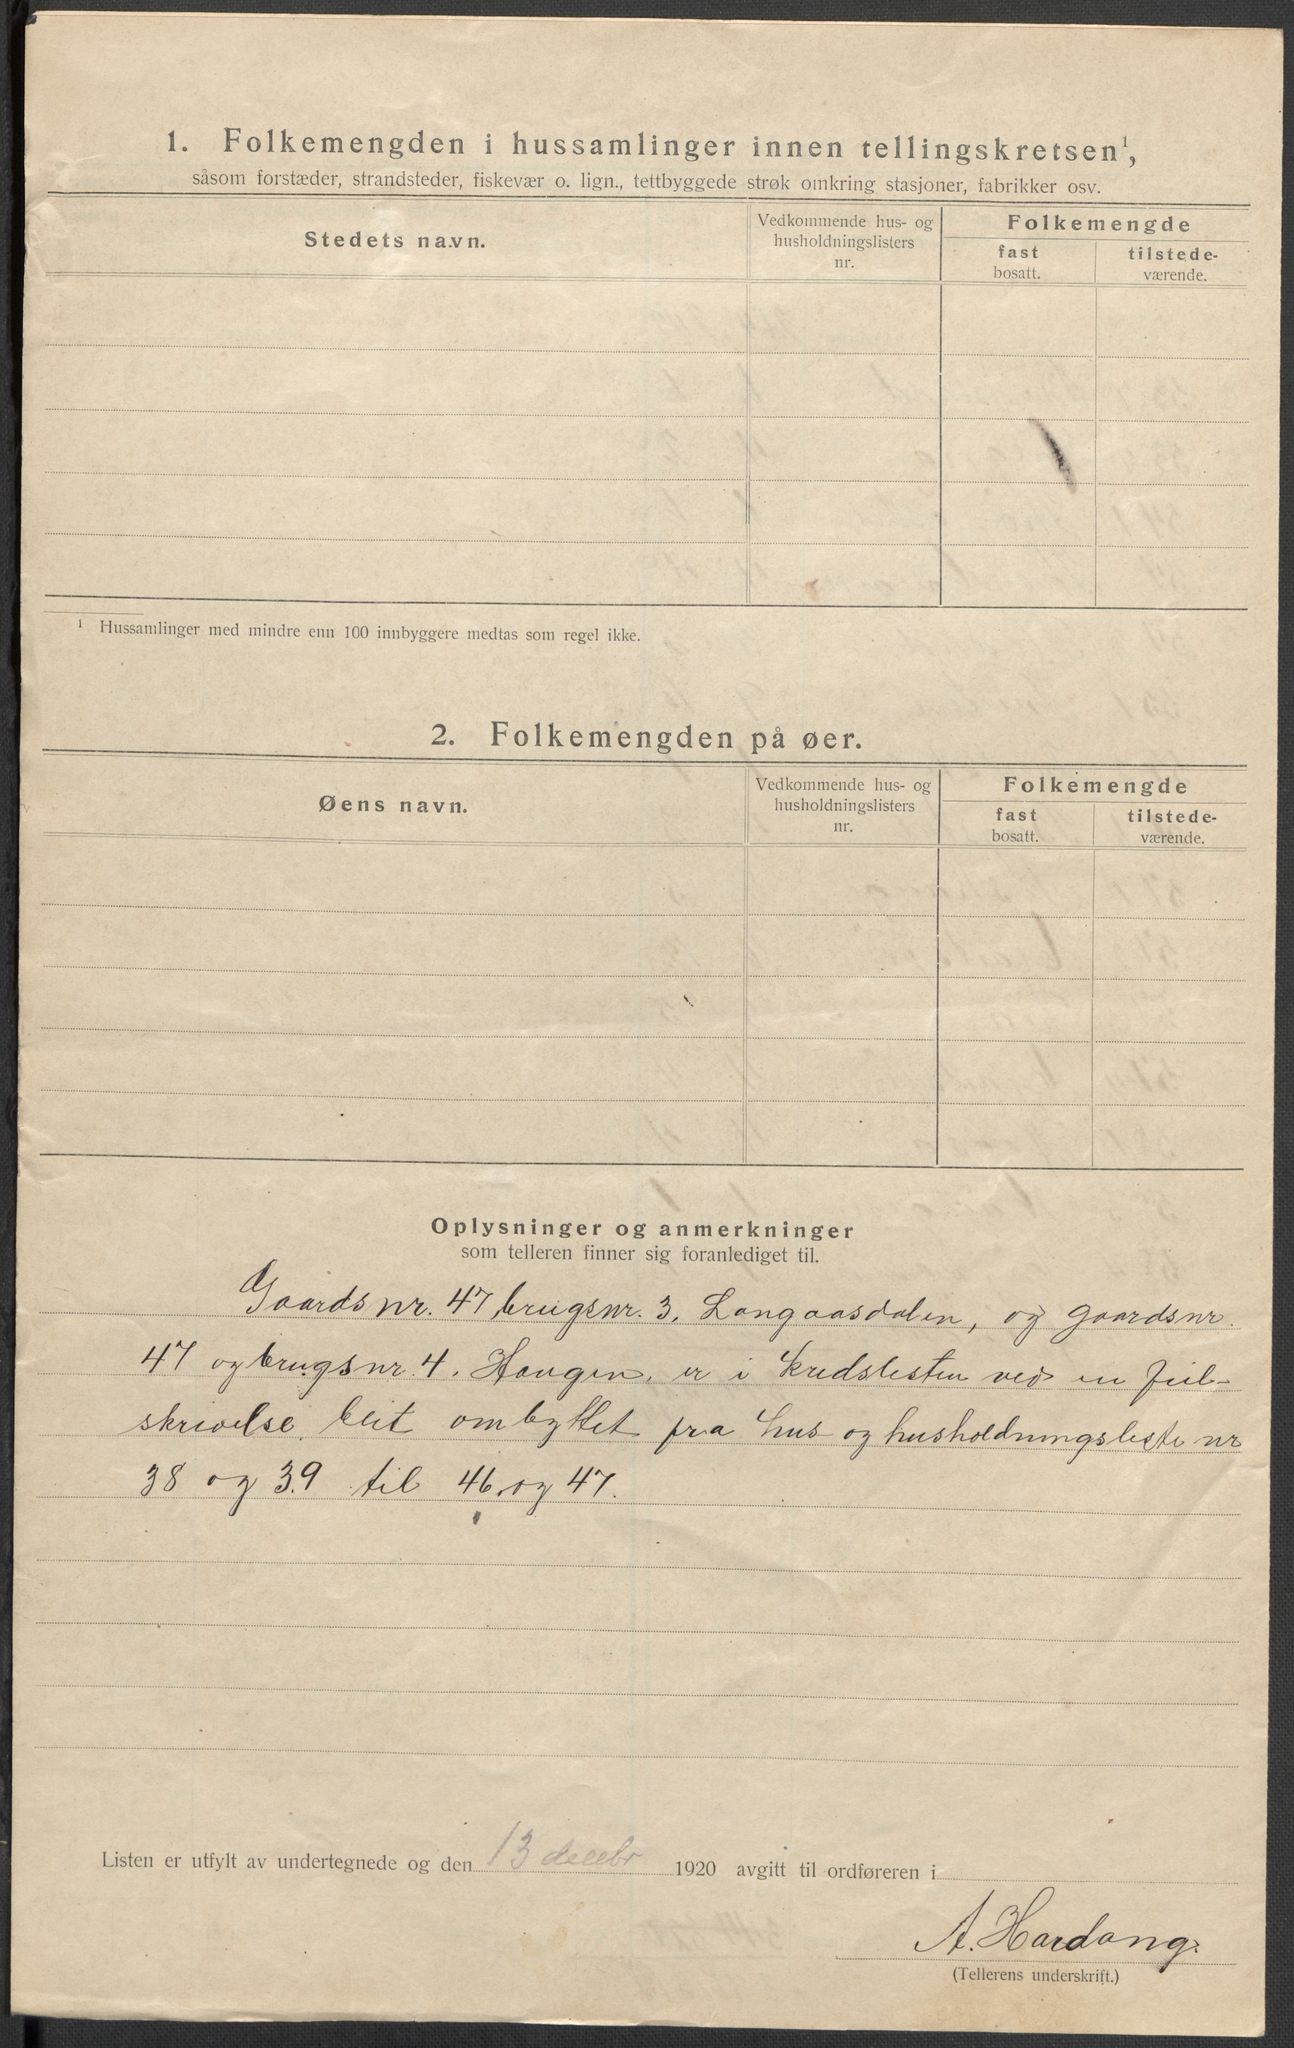 1. Folkemengden i hussamlinger innen tellingskretsen¹,
såsom forstæder, strandsteder, fiskevær o. lign., tettbyggede strøk omkring stasjoner, fabrikker osv.
Stedets navn.
Vedkommende hus- og
husholdningslisters
nr.
Folkemengde
fast
bosatt.
tilstede-
værende.
¹ Hussamlinger med mindre enn 100 innbyggere medtas som regel ikke.
2. Folkemengden på øer.
Øens navn.
Vedkommende hus- og
husholdningslisters
nr.
Folkemengde
fast
bosatt.
tilstede-
værende.
Oplysninger og anmerkninger
som telleren finner sig foranlediget til.
Gaardsnr. 47 brugsnr. 3. Langaasdalen, og gaardsnr.
47 og brugsnr. 4. Haugen, er i kredslisten ved en feil-
skrivelse blit ombyttet fra hus og husholdningsliste nr
38 og 39 til 46 og 47.
Listen er utfylt av undertegnede og den 13 decbr 1920 avgitt til ordføreren i
A. Hardang.
(Tellerens underskrift.)